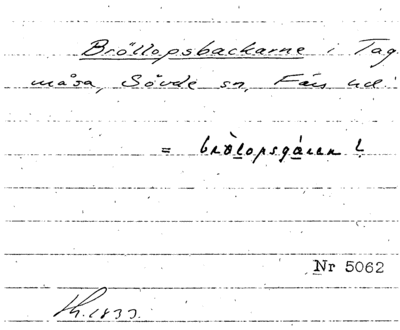 Bröllopsbackarne i Tag
måsa, Sövde sn, Färs hd.
= brölopsgåren ?
Nr 5062
Kh. 1833.